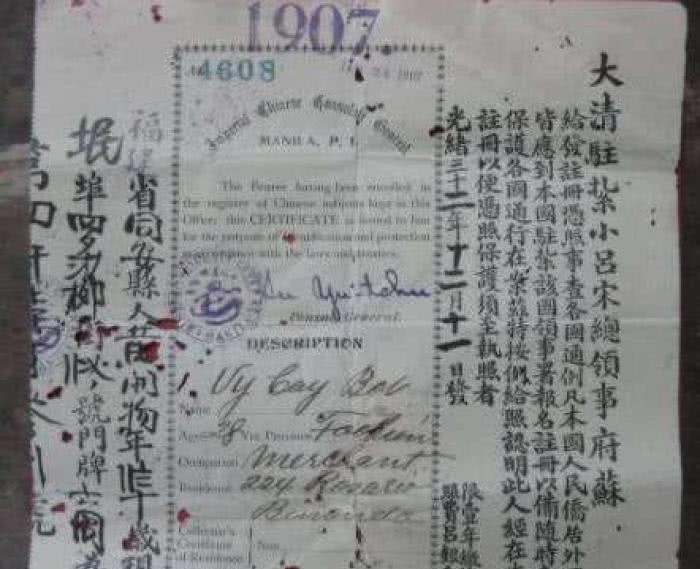 1907
4608
24 1907
Imperial Chinese Consulate General
MANILA, P. I.
The Bearer having been enrolled in
the register of Chinese subjects kept in this
Office; this CERTIFICATE is issued to him
for the purpose of identification and protection
in accordance with the laws and treaties.
Consul General.
DESCRIPTION
Name Uy Cay Bok
Age 28 Yrs. Province Fookien
Occupation Merchant
Residence 224 Rosario
Binondo
Collector's
Certificate
of Residence
大清駐紮小呂宋總領事府蘇
給發註冊憑照事查各國通例凡本國人民僑居外
皆應到本國駐紮該國領事署報名註冊以備隨時
保護各國通行在案茲特按例給照認明此人經在
註冊以便憑照保護須至執照者
光緒三十二年十二月十一日發
限壹年繳
福建省同安縣人
年
歲現
埠
號門牌